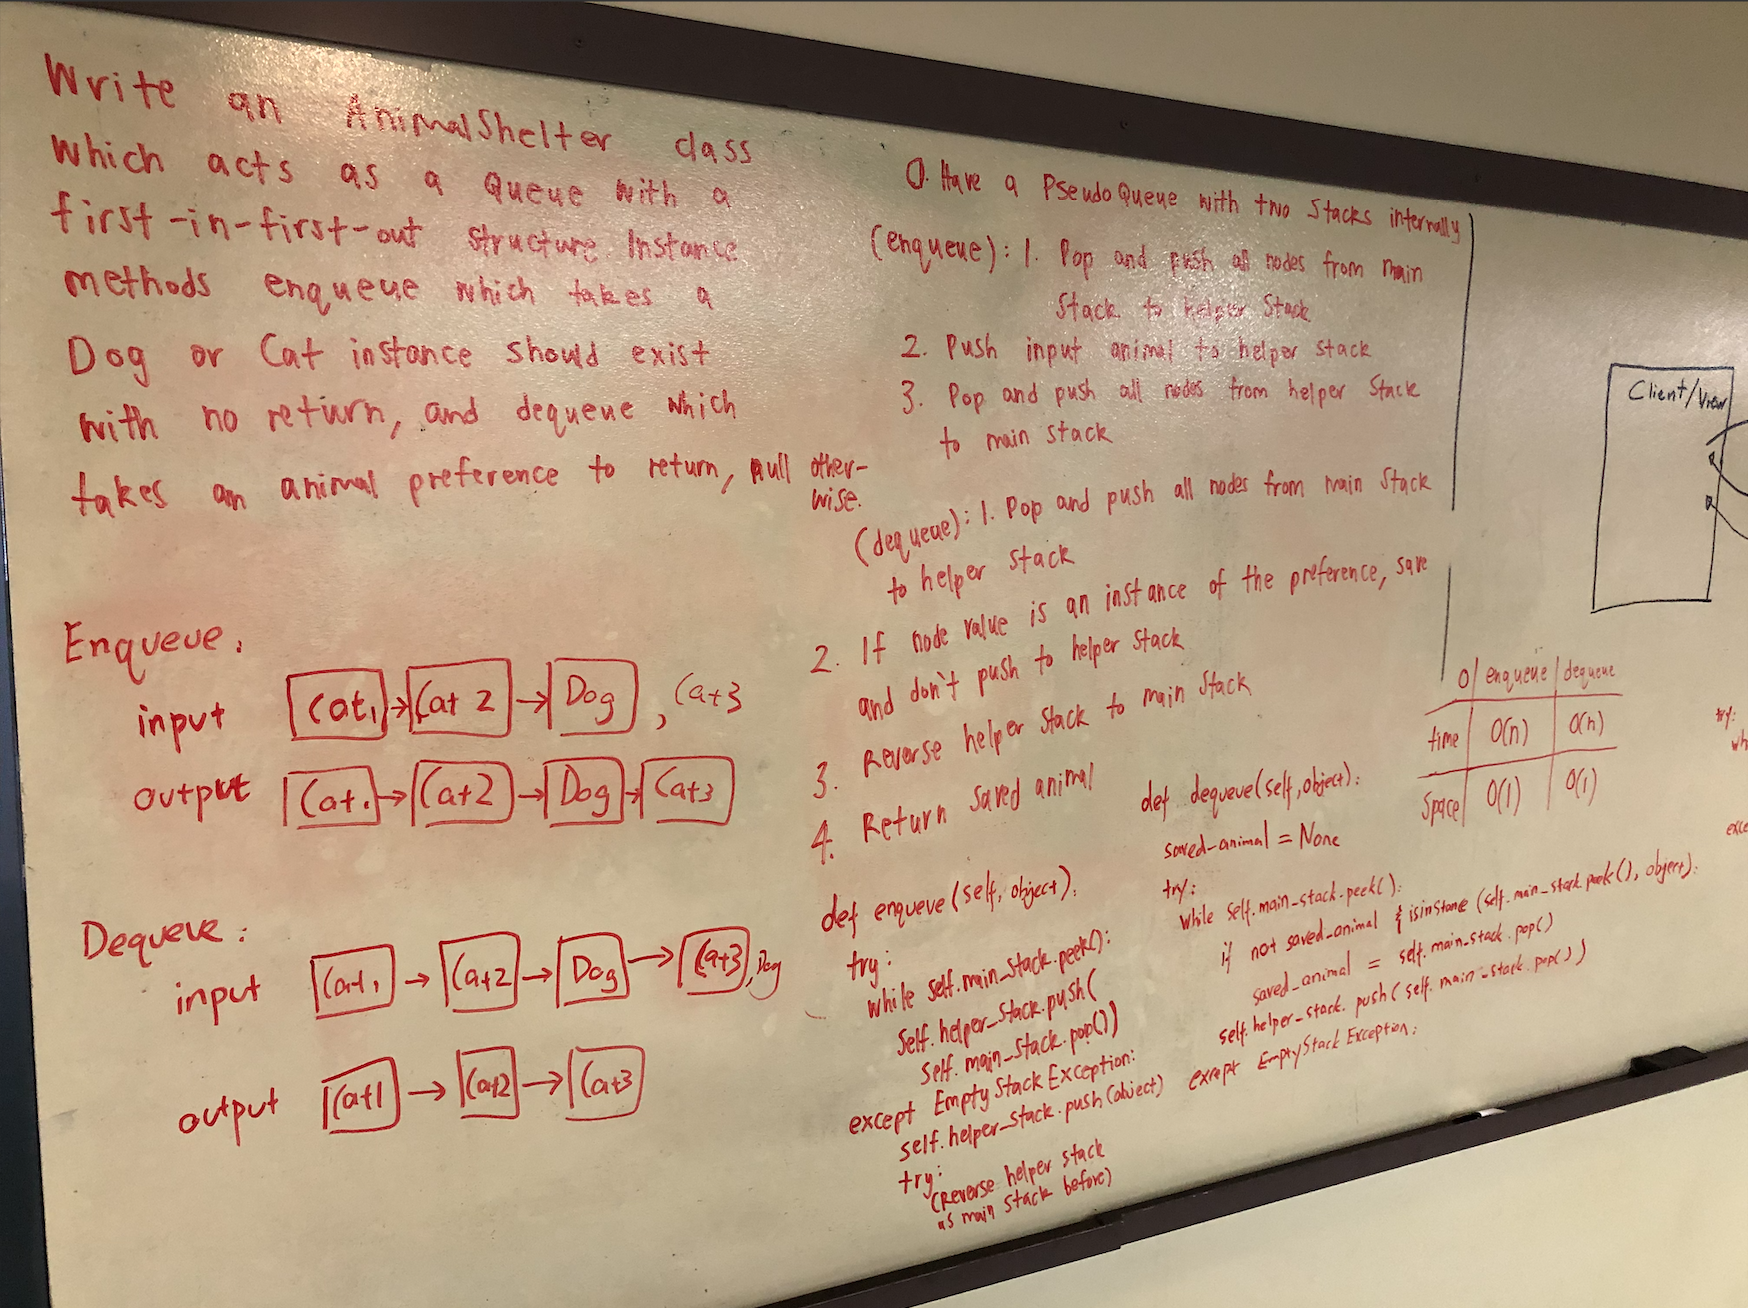 Write an AnimalShelter class
which acts as a Queue with a
first-in-first-out structure. Instance
methods enqueue which takes a
Dog or Cat instance should exist
with no return, and dequeue which
takes an animal preference to return, null other-
wise.
Enqueue:
input Cat1 → Cat 2 → Dog , Cat3
output Cat1 → Cat2 → Dog → Cat3
Dequeue:
input Cat1 → Cat2 → Dog → Cat3 , Dog
output Cat1 → Cat2 → Cat3
0. Have a PseudoQueue with two Stacks internally
(enqueue): 1. Pop and push all nodes from main
Stack to helper Stack
2. Push input animal to helper stack
3. Pop and push all nodes from helper Stack
to main stack
(dequeue): 1. Pop and push all nodes from main Stack
to helper stack
2. If node value is an instance of the preference, save
and don't push to helper stack
3. Reverse helper stack to main stack
4. Return saved animal
def enqueue(self, object):
try:
while self.main_stack.peek():
self.helper_stack.push(
self.main_stack.pop())
except EmptyStackException:
self.helper_stack.push(object)
try:
(Reverse helper stack
as main stack before)
def dequeue(self, object):
saved_animal = None
try:
while self.main_stack.peek():
if not saved_animal & isinstance(self.main_stack.peek(), object):
saved_animal = self.main_stack.pop()
self.helper_stack.push(self.main_stack.pop())
except EmptyStackException:
O | enqueue | dequeue
time O(n) O(n)
Space O(1) O(1)
Client/View
try:
wh
exce